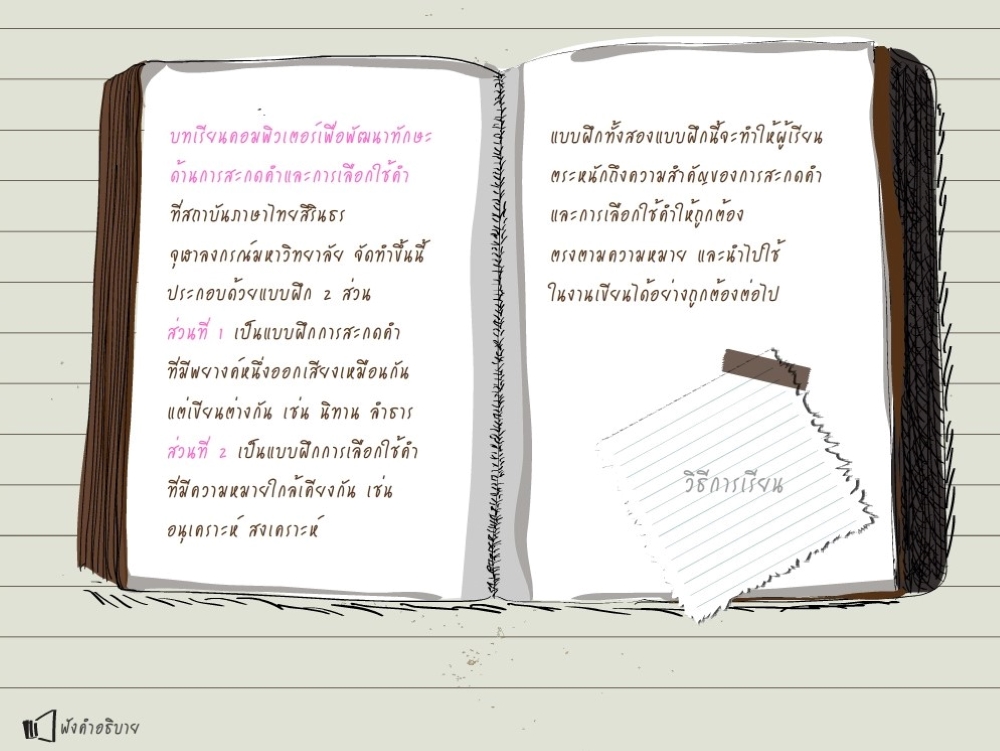 บทเรียนคอมพิวเตอร์เพื่อพัฒนาทักษะ
ด้านการสะกดคำและการเลือกใช้คำ
ที่สถาบันภาษาไทยสิรินธร
จุฬาลงกรณ์มหาวิทยาลัย จัดทำขึ้นนี้
ประกอบด้วยแบบฝึก 2 ส่วน
ส่วนที่ 1 เป็นแบบฝึกการสะกดคำ
ที่มีพยางค์หนึ่งออกเสียงเหมือนกัน
แต่เขียนต่างกัน เช่น นิทาน ลำธาร
ส่วนที่ 2 เป็นแบบฝึกการเลือกใช้คำ
ที่มีความหมายใกล้เคียงกัน เช่น
อนุเคราะห์ สงเคราะห์
แบบฝึกทั้งสองแบบฝึกนี้จะทำให้ผู้เรียน
ตระหนักถึงความสำคัญของการสะกดคำ
และการเลือกใช้คำให้ถูกต้อง
ตรงตามความหมาย และนำไปใช้
ในงานเขียนได้อย่างถูกต้องต่อไป
วิธีการเรียน
ฟังคำอธิบาย